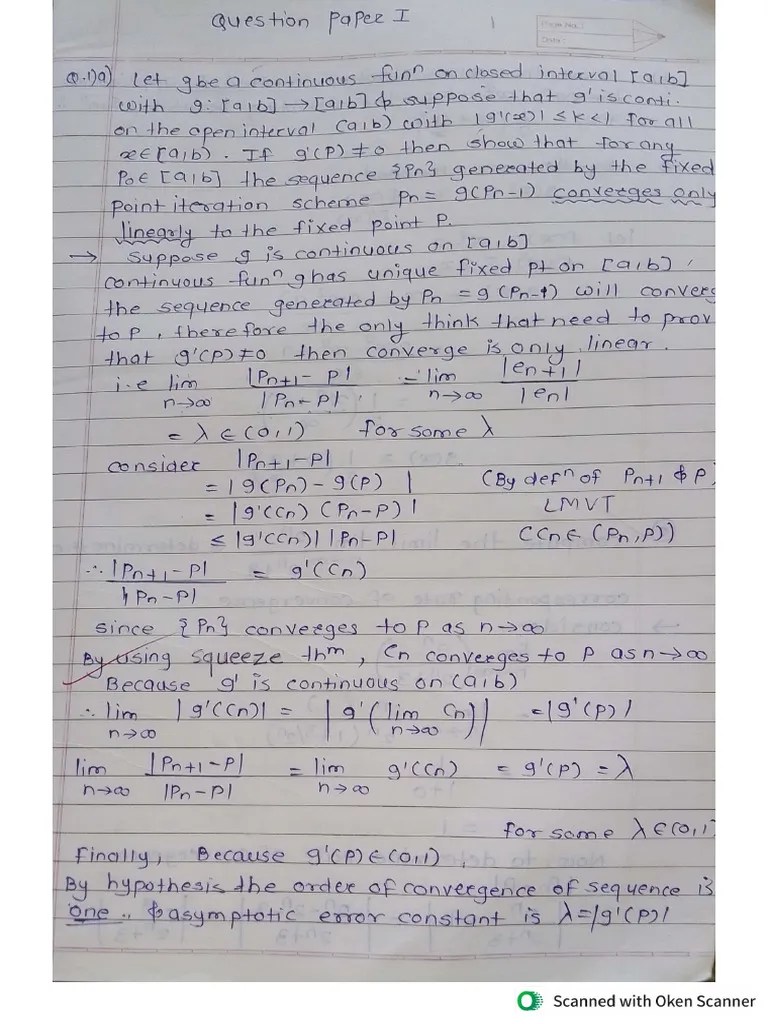 Question Paper I
1
Page No.
Date
Q.1)a) Let g be a continuous funⁿ on closed interval [a,b]
with g: [a,b] → [a,b] & suppose that g' is conti.
on the open interval (a,b) with |g'(x)| ≤ k < 1 for all
x ∈ [a,b). If g'(P) ≠ 0 then show that for any
P₀ ∈ [a,b] the sequence {Pn} generated by the fixed
point iteration scheme Pn = g(Pn-1) converges only
linearly to the fixed point P.
→ suppose g is continuous on [a,b]
continuous funⁿ g has unique fixed pt on [a,b],
the sequence generated by Pn = g(Pn-1) will converg
to P, therefore the only think that need to prov
that g'(P) ≠ 0 then converge is only linear.
i.e lim n→∞ |Pn+1 - P| / |Pn - P| = lim n→∞ |en+1| / |en|
= λ ∈ (0,1) for some λ
consider |Pn+1 - P|
= |g(Pn) - g(P)| (By defⁿ of Pn+1 & P)
= |g'(Cn) (Pn-P)| LMVT
≤ |g'(Cn)| |Pn-P| (Cn ∈ (Pn,P))
∴ |Pn+1 - P| / |Pn - P| = g'(Cn)
since {Pn} converges to P as n→∞
By using squeeze thᵐ, Cn converges to P as n→∞
Because g' is continuous on (a,b)
∴ lim n→∞ |g'(Cn)| = |g'(lim n→∞ Cn)| = |g'(P)|
lim n→∞ |Pn+1 - P| / |Pn - P| = lim n→∞ g'(Cn) = g'(P) = λ
for some λ ∈ (0,1)
Finally, Because g'(P) ∈ (0,1),
By hypothesis the order of convergence of sequence is
one .. & asymptotic error constant is λ = |g'(P)|
Scanned with Oken Scanner